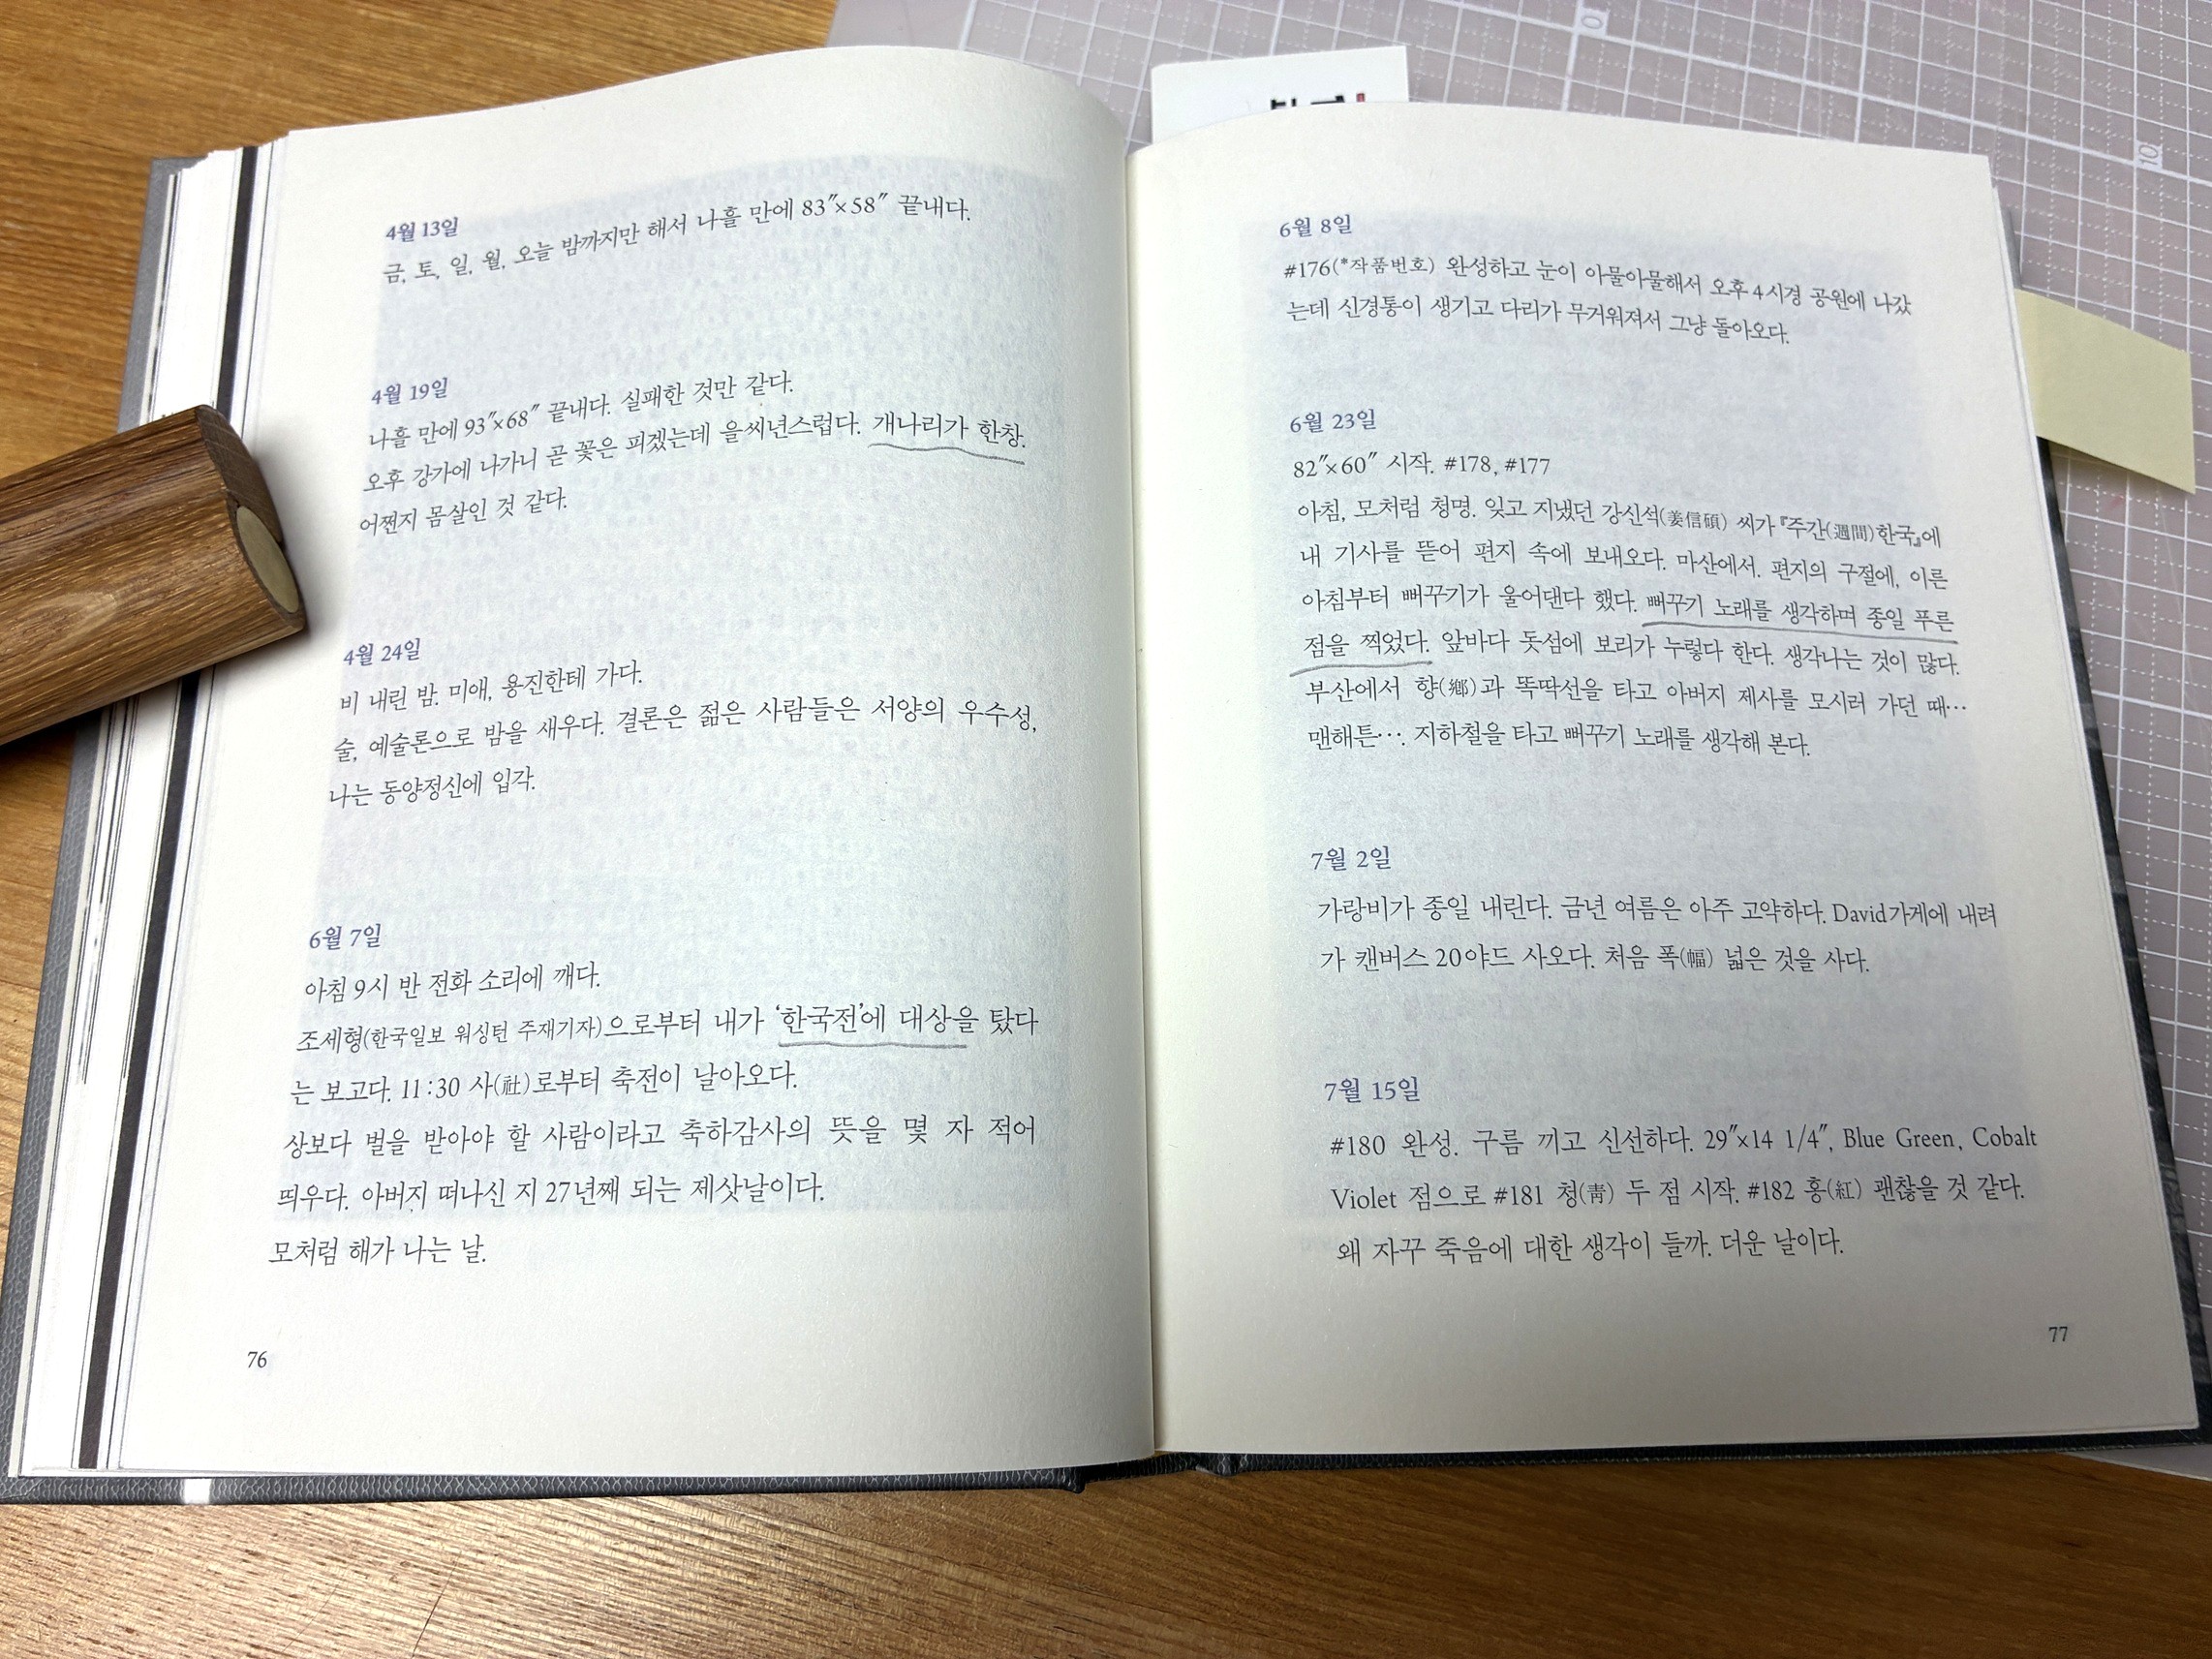 4월 13일
금, 토, 일, 월, 오늘 밤까지만 해서 나흘 만에 83″×58″ 끝내다.
4월 19일
나흘 만에 93″×68″ 끝내다. 실패한 것만 같다.
오후 강가에 나가니 곧 꽃은 피겠는데 을씨년스럽다. 개나리가 한창.
어쩐지 몸살인 것 같다.
4월 24일
비 내린 밤. 미애, 용진한테 가다.
술, 예술론으로 밤을 새우다. 결론은 젊은 사람들은 서양의 우수성,
나는 동양정신에 입각.
6월 7일
아침 9시 반 전화 소리에 깨다.
조세형(한국일보 워싱턴 주재기자)으로부터 내가 ‘한국전’에 대상을 탔다
는 보고다. 11:30 사(社)로부터 축전이 날아오다.
상보다 벌을 받아야 할 사람이라고 축하감사의 뜻을 몇 자 적어
띄우다. 아버지 떠나신 지 27년째 되는 제삿날이다.
모처럼 해가 나는 날.
76
6월 8일
#176(*작품번호) 완성하고 눈이 아물아물해서 오후 4시경 공원에 나갔
는데 신경통이 생기고 다리가 무거워져서 그냥 돌아오다.
6월 23일
82″×60″ 시작. #178, #177
아침, 모처럼 청명. 잊고 지냈던 강신석(姜信碩) 씨가 『주간(週間)한국』에
내 기사를 뜯어 편지 속에 보내오다. 마산에서. 편지의 구절에, 이른
아침부터 뻐꾸기가 울어댄다 했다. 뻐꾸기 노래를 생각하며 종일 푸른
점을 찍었다. 앞바다 돗섬에 보리가 누렇다 한다. 생각나는 것이 많다.
부산에서 향(鄕)과 똑딱선을 타고 아버지 제사를 모시러 가던 때…
맨해튼…. 지하철을 타고 뻐꾸기 노래를 생각해 본다.
7월 2일
가랑비가 종일 내린다. 금년 여름은 아주 고약하다. David가게에 내려
가 캔버스 20야드 사오다. 처음 폭(幅) 넓은 것을 사다.
7월 15일
#180 완성. 구름 끼고 신선하다. 29″×14 1/4″, Blue Green, Cobalt
Violet 점으로 #181 청(靑) 두 점 시작. #182 홍(紅) 괜찮을 것 같다.
왜 자꾸 죽음에 대한 생각이 들까. 더운 날이다.
77
10